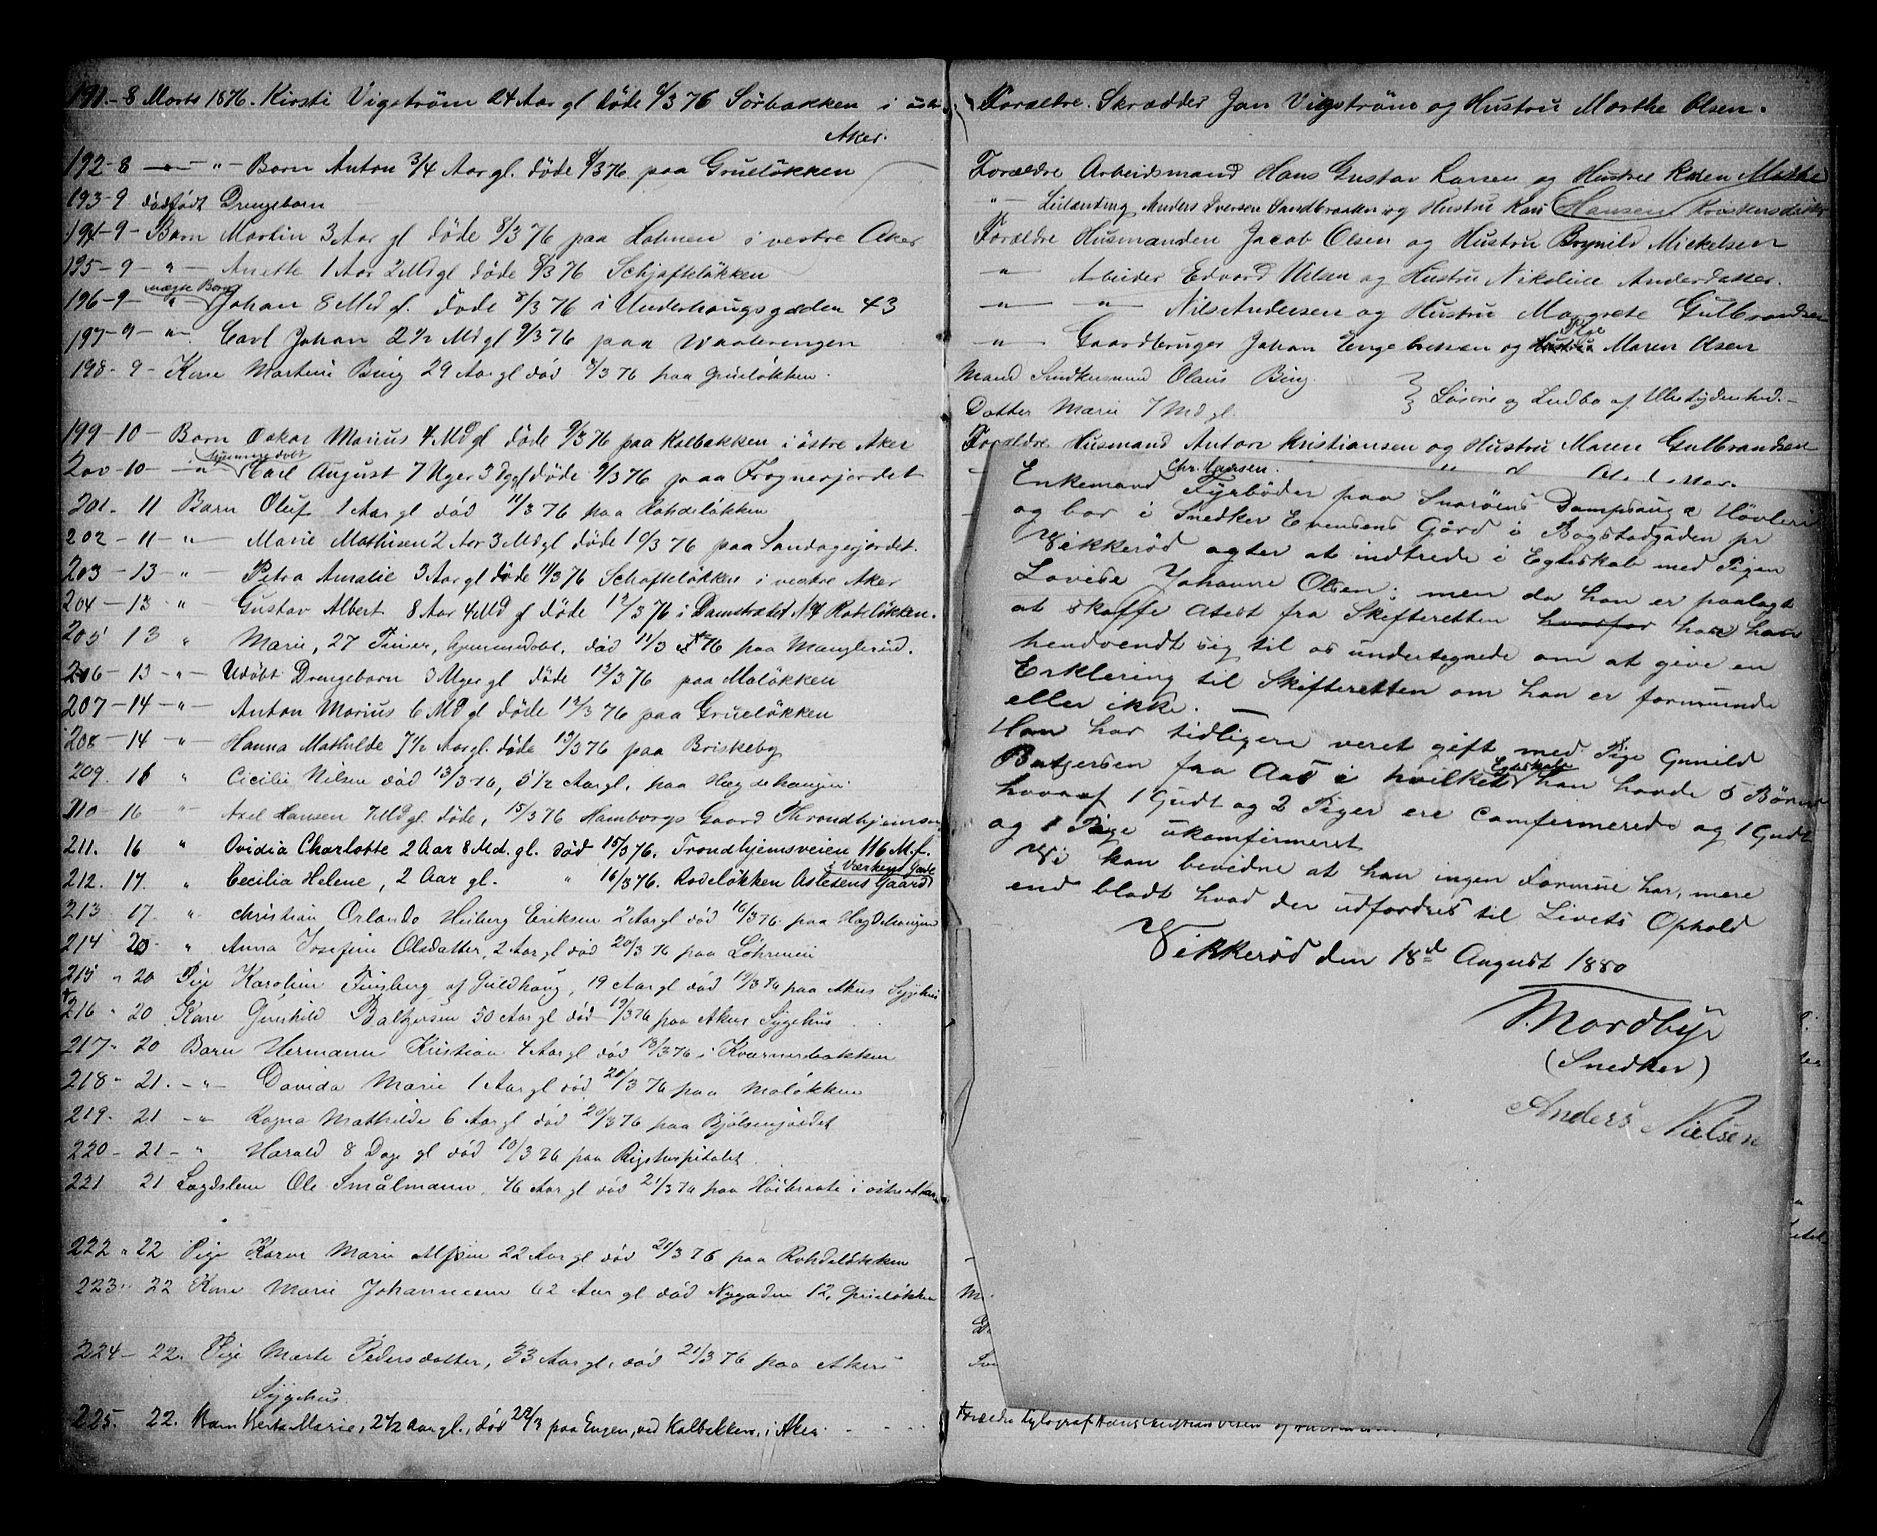 191. - 8 Marts 1876. Kirsti Vigstrøm 24 Aar gl døde 6/3 76 Sørbakken i
Aker.
192 - 8 — " - Barn Anton 3/4 Aar gl. døde 8/3 76 paa Grueløkken
193 - 9 dødfødt Drengebarn
194 - 9 - Barn Martin 3 Aar gl døde 8/3 76 paa Holmen i vestre Aker
195 - 9 - " - Anette 1 Aar 2 Md gl døde 8/3 76 Schjafteløkken
uægte Barn
196 - 9 - " Johan 8 Md gl. døde 8/3 76 i Underhaugsgaden 43
197 - 9 - " - Carl Johan 2 1/2 Md gl 9/3 76 paa Vaalerengen
198 - 9 - Kone Martine Bing 29 Aar gl død /3 76 paa Grueløkken.
199 - 10 - Barn Oskar Marius 4 Md gl døde 9/3 76 paa Kalbakken i østre Aker
hjemmedøbt
200 - 10 - " Carl August 7 Uger 3 Dg gl døde 9/3 76 paa Frognerjordet
201. 11 Barn Oluf 1 Aar gl død 11/3 76 paa Rohdeløkken
202 - 11 - " - Marie Mathisen 2 Aar 3 Md gl døde 10/3 76 paa Sandagerjordet.
203 - 13 - " - Petra Amalie 3 Aar gl døde 11/3 76 Schafteløkken i vestre Aker
204 - 13 " - Gustav Albert 8 Aar 4 Md gl døde 12/3 76 i Damstrædet N 4 Rodeløkken.
205 13 " Marie, 27 Timer, hjemmedøbt, død 11/3 76 paa Manglerud.
206 - 13 - " - Udøbt Drengebarn 3 Uger gl døde 12/3 76 paa Maløkken
207 - 14 - " - Anton Marius 6 Md gl døde 12/3 76 paa Grueløkken
208 - 14 " - Hanna Mathilde 7 1/2 Aar gl. døde 13/3 76 paa Briskeby
209. 16 " Cicilie Nilsen død 13/3 76, 5 1/2 Aar gl, paa Hagdehaugen
210 - 16 " Axel Hansen 7 Md gl døde, 15/3 76 Hamborgs Gaard Throndhjemsv
211. 16 " Ovidia Charlotte 2 Aar 8 Md. gl. død 15/3 76. Trondhjemsveien 116 M.f.
i Værkens Gade
212. 17. " Cecilia Helene, 2 Aar gl. " 16/3 76. Rodeløkken Aslesens Gaard
213 17. " Christian Orlando Heiberg Eriksen 2 Aar gl død 16/3 76 paa Hagdehaugen
214 20 " Anna Josefine Olsdatter, 2 Aar gl død 20/3 76 paa Løhreneie
215 " 20 Pige Karoline Finsberg af Guldhaug, 19 Aar gl død 19/3 76 paa Akers Sygehus
216 " 20 Kone Gunhild Baltzersen 50 Aar gl død 19/3 76 paa Akers Sygehus
217 - 20 Barn Hermann Kristian 4 Aar gl død 18/3 76 i Kværnerbakken
218 - 21. - " - Davida Marie 1 Aar gl død 20/3 76 paa Maløkken
219. 21 - " Ragna Mathilde 6 Aar gl død 20/3 76 paa Bjølsenjordet
220 - 21 - " Harald 8 Dage gl død 10/3 76 paa Rigshospitalet
221 21 Lægdslem Ole Smålmann, 46 Aar gl død 21/3 76 paa Høibraate i østre Aker
222 " 22 Pige Karen Marie Alfsen 22 Aar gl død 21/3 76 paa Rohdeløkken
223. 22 Kone Marie Johannesen 62 Aar gl død Nygaden 12, Grueløkken
224 - 22. Pige Marte Pedersdatter, 33 Aar gl, død 21/3 76 paa Akers
Sygehus.
225. 22. Barn Berta Marie, 2 1/2 Aar gl., død 20/3 paa Engen, ved Kalbakken, i Aker.
Forældre. Skrædder Jan Vigstrøm og Hustru Marthe Olsen.
Forældre Arbeidsmand Hans Gustav Larsen og Hustru Karen Mathe
" - Leilænding Anders Iversen Sandbraaten og Hustru Kari Hansen
Forældre Husmanden Jacob Olsen og Hustru Brynild Mickelsen
" Arbeider Edvard Nilsen og Hustru Nikoline Andersdatter.
" " Nils Andersen og Hustru Margrete Gulbrandsen
Pige
" - Gaardbruger Johan Engebretsen og Hustru Maren Olsen
Mand Snedkersvend Olaus Bing.
} Løsøre og Indbo af Ubetydenhed. -
Datter Marie 7 Md gl.
Forældre Husmand Anton Kristiansen og Hustru Maren Gulbrandsen
Chr. Hansen.
Enkemand Fyrbøder paa Snarøens Dampsaug & Høvleri
og bor i Snedker Evensens Gård i Bogstadgaden pr
Vikkerød agter at indtrede i Egteskab med Pigen
Lovise Johanne Olsen; men da han er paalagt
at skaffe Atest fra Skifteretten hvorfor har han
hendvendt sig til os undertegnede om at give en
Erklering til Skifteretten om han er formuende
eller ikke. —
Han har tidligere veret gift med Pige Gunild
Egteskab
Batzersen fra Aas i hvilket han havde 5 Børn
hvoraf 1 Gudt og 2 Piger ere Comfermerede og 1 Gudt
og 1 Pige ukomfirmeret
Vi kan bevidne at han ingen Formue har, mere
end bladt hvad der udfordres til Livets Ophold
Vikkerød den 18de August 1880
T. Nordbye
(Snedker)
Anders Nielsen